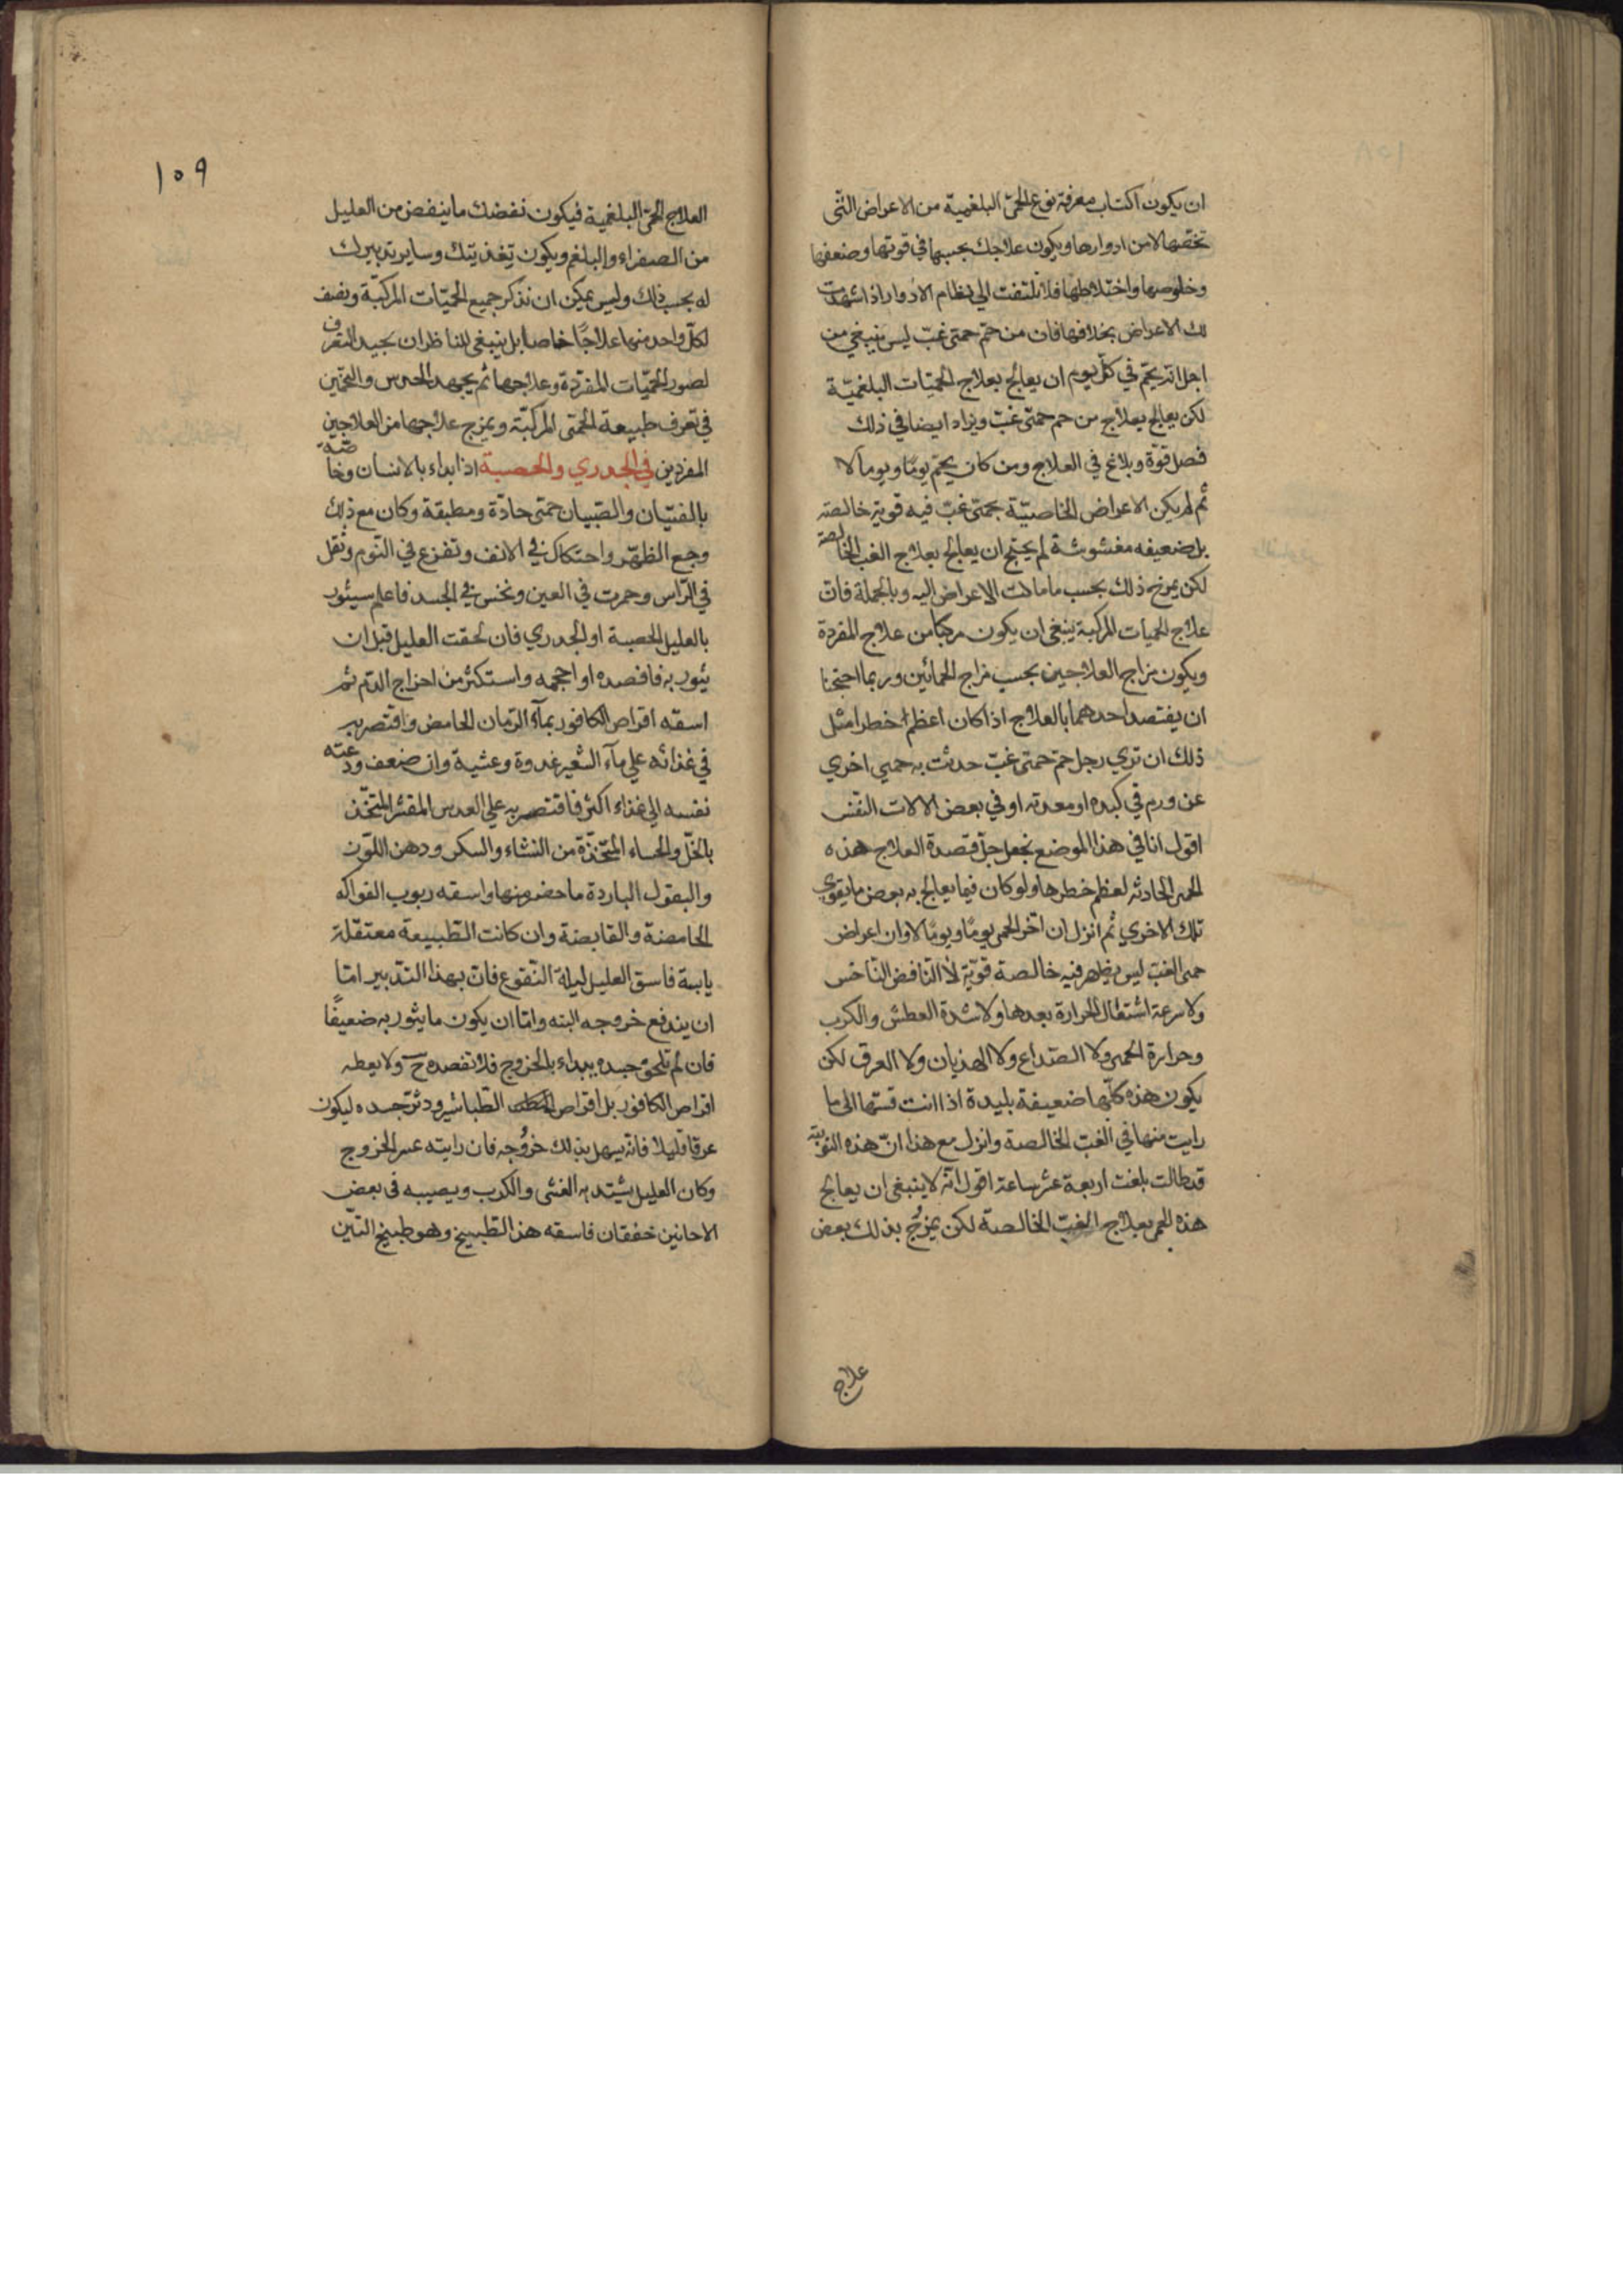 ان يكون اكتساب معرفة نوع الحمى البلغمية من الاعراض التى
تخصها لا من ادوارها ويكون علاجك بحسبها فى قوتها وضعفها
وخلوصها واختلاطها فلا تلتفت الي نظام الادوار اذا شهدت
لك الاعراض بخلافها فان من حمّ حمتى غبّ ليس ينبغي من
اجل انه يحمّ في كلّ يوم ان يعالج بعلاج الحميّات البلغميّة
لكن يعالج بعلاج من حم حمتى غبّ ويزاد ايضا في ذلك
فصل قوة وبلاغ في العلاج ومن كان يحمّ يومًا ويوما لا
ثم لم يكن الاعراض الخاصيّة بحمتى غبّ فيه قوية خالصة
بل ضعيفه مغشوشة لم يحتج ان يعالج بعلاج الغب الخالصة
لكن يمزج ذلك بحسب ما مالت الاعراض اليه وبالجملة فان
علاج الحميات المركبة ينبغى ان يكون مركبا من علاج المفردة
ويكون مزاج العلاجين بحسب مزاج الحمائين وربما احتجنا
ان يقتصد احدهما بالعلاج اذا كان اعظم خطرا مثل
ذلك ان تري رجل حمّ حمتى غبّ حدثت به حمي اخري
عن ورم في كبده او معدته او في بعض الالات التفس
اقول انا في هذا الموضع نجعل جلّ قصدة العلاج هذه
الحمى الحادثه لعظم خطرها ولو كان فيما يعالج به بعض ما يقوي
تلك الاخري ثم انزل ان اخر الحمى يومًا ويومًا لا وان اعراض
حمى الغبّ ليس يظهر فيه خالصة قويّة لا النافض الناخس
ولا سرعة اشتغال الحرارة بعدها ولا شدة العطش والكرب
وحرارة الحمى ولا الصّداع ولا الهذيان ولا العرق لكن
يكون هذه كلّها ضعيفة بليدة اذا انت قستها الى ما
رايت منها في الغبّ الخالصة وانزل مع هذا انّ هذه النوبة
قد طالت بلغت اربعة عشر ساعة اقول انّه لا ينبغى ان يعالج
هذه الحمى بعلاج الغبّ الخالصة لكن يمزُج بذلك بعض
علاج
١٠٩
العلاج الحمى البلغمية فيكون نفضك ما ينفض من العليل
من الصفراء والبلغم ويكون تغذيتك وساير تدبيرك
له بحسب ذلك وليس يمكن ان نذكر جميع الحميّات المركبّة ونصف
لكلّ واحد منها علاجًا خاصا بل ينبغى للناظر ان يجيد التعرف
لصور الحميّات المفردة وعلاجها ثم يجهد الحدس والتخمين
في تعرف طبيعة الحمتى المركبّة ويمزج علاجها من العلاجين
المفردين في الجدري والحصبة اذا بداء بالانسان وخاصّة
بالفتيان والصّبيان حمتى حادّة ومطبقة وكان مع ذلك
وجع الظهر واحتكاك في الانف وتفزع في النّوم وثقل
في الرّاس وحمرت في العين ونخس في الجسد فاعلم سيثور
بالعليل الحصبة او الجدري فان لحقت العليل قبل ان
يثور به فافصده او احجمه واستكثر من اخراج الدّم ثم
اسقه اقراص الكافور بمآء الرّمان الحامض واقتصر به
في غذائه علي مآء الشعير غدوة وعشية وان ضعف ودعته
نفسه الي غذاء اكثر فاقتصر به علي العدس المقشر المتخّذ
بالخلّ والحساء المتخّذة من النشاء والسكر ودهن اللّوز
والبقول الباردة ما حضر منها واسقه ربوب الفواكه
الحامضة والقابضة وان كانت الطّبيعة معتقلة
يابسة فاسق العليل ليلة النّقوع فان بهذا التّدبير امّا
ان يندفع خروجه البته وامّا ان يكون ما يثور به ضعيفًا
فان لم تلحق جسده يبداء بالخروج فلا تفصده ح ولا يعطه
اقراص الكافور بل اقراص الطّباشير ودثر جسده ليكون
عرقا قليلا فانّه يسهل بذلك خرُوجه فان رايته عسر الخروج
وكان العليل يشتد به الغشى والكرب ويصيبه فى بعض
الاحانين خفقان فاسقه هذا الطّبيخ وهو طبيخ التّين